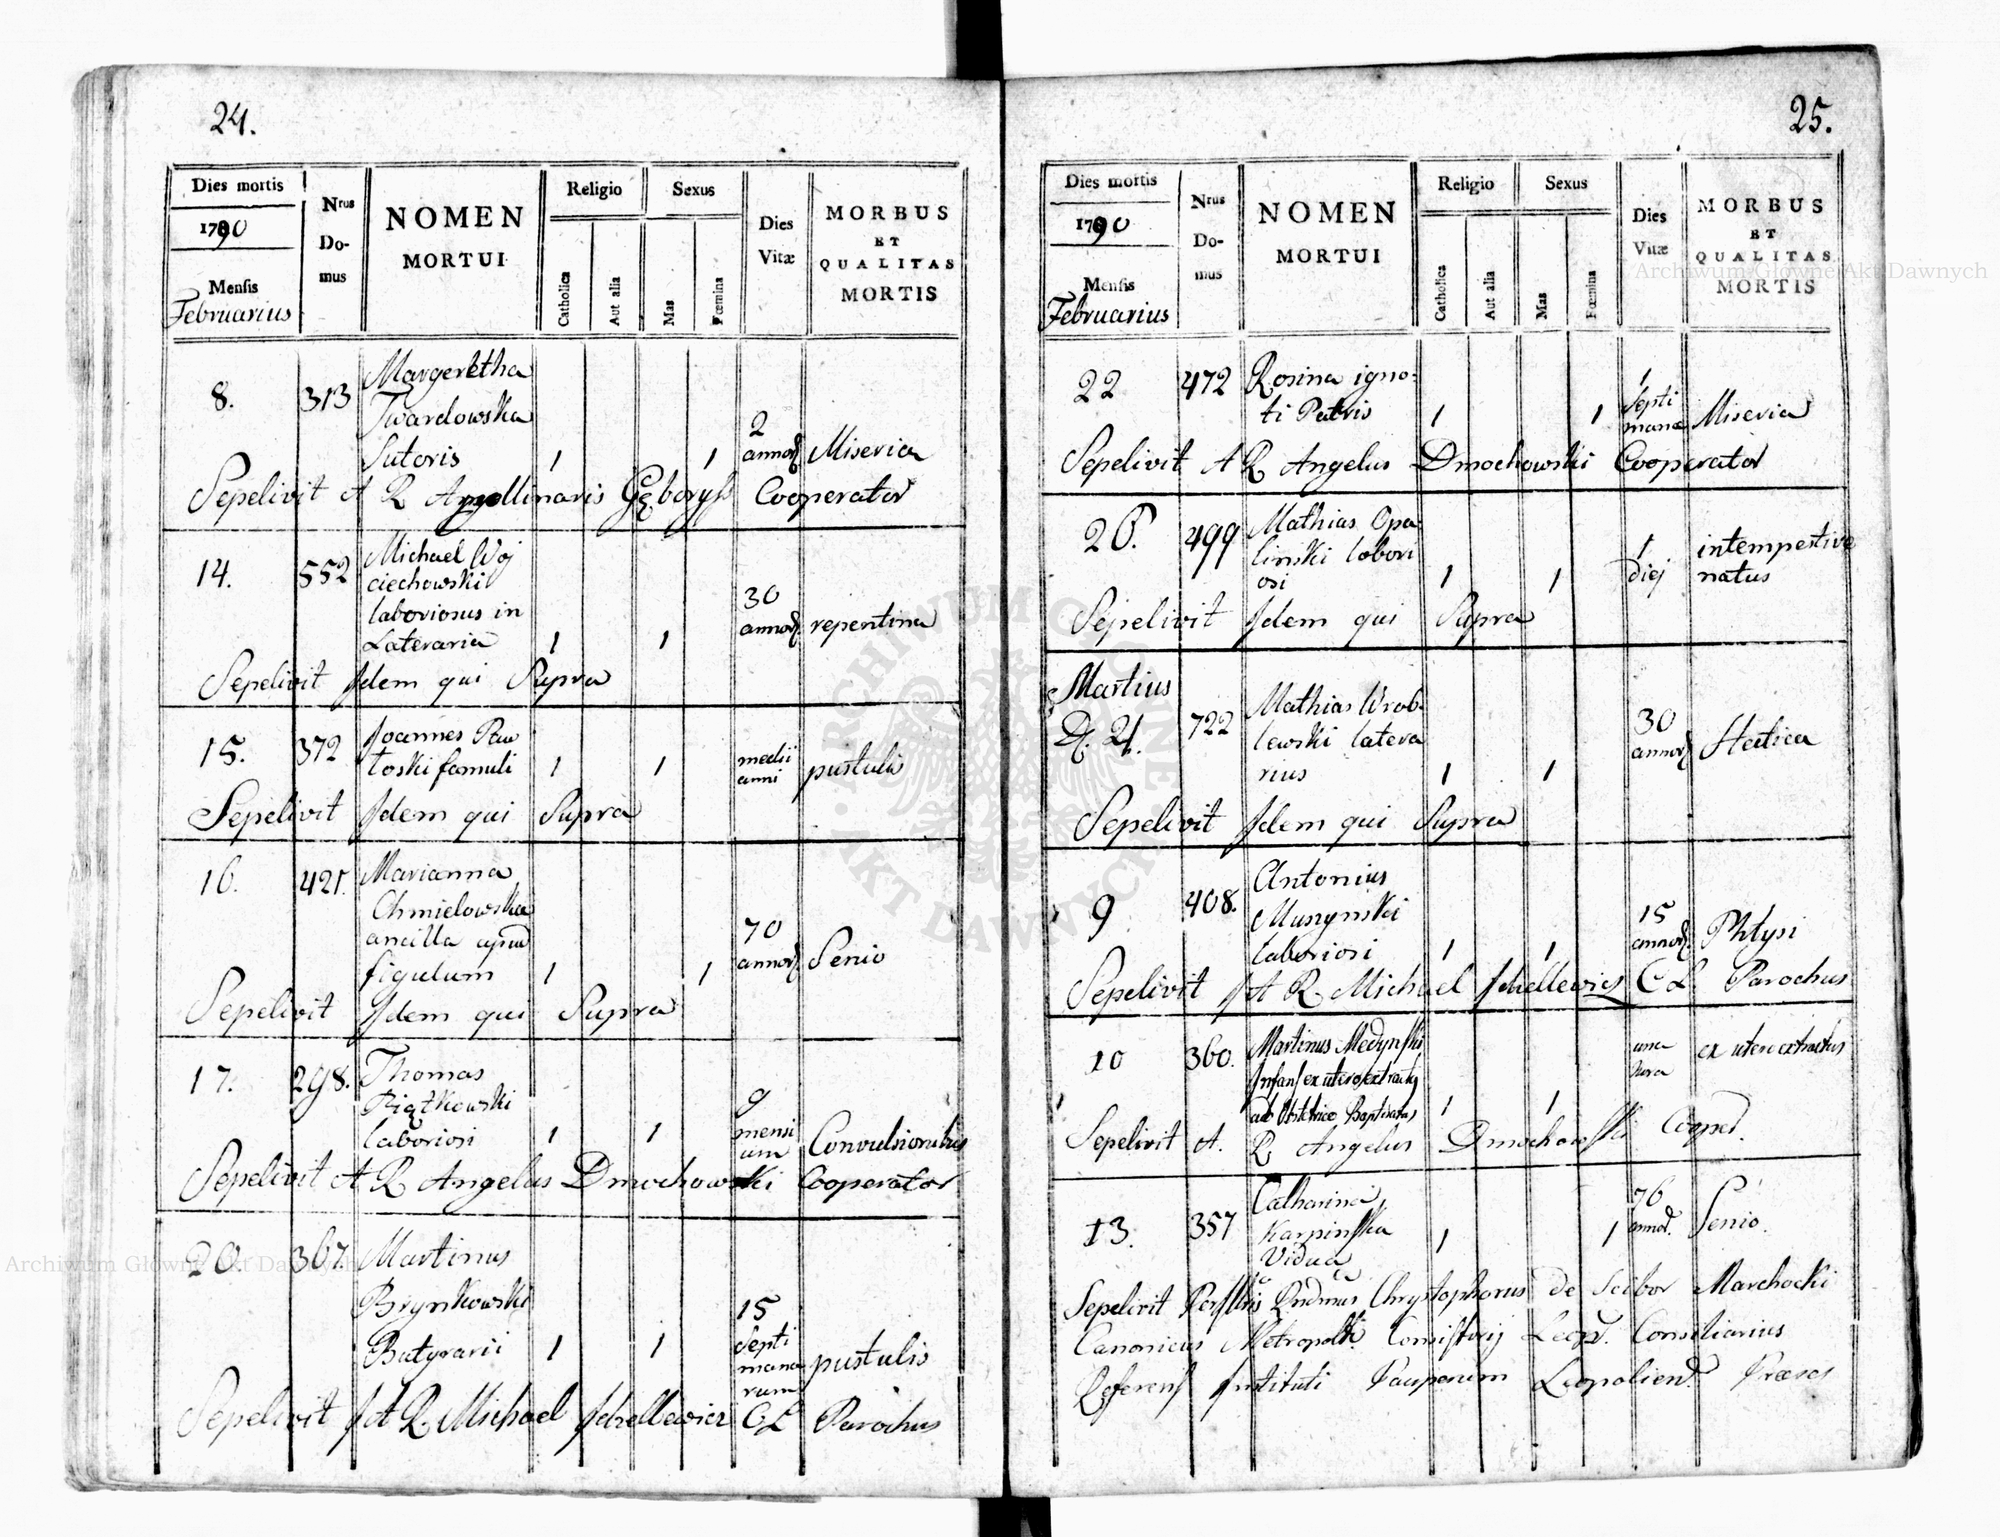 24.
Dies mortis
1790
Mensis
Februarius
Nrus
Do-
mus
NOMEN
MORTUI
Religio
Catholica
Aut alia
Sexus
Mas
Fœmina
Dies
Vitæ
MORBUS
ET
QUALITAS
MORTIS
8. 313 Margeretha
Twardowska
Sutoris 1 1 2 annor Miseria
Sepelivit A R Apollinaris Cooperator
14. 552 Michael Woj
ciechowski
laboriosus in
Lateraria 1 1 30 annor repentina
Sepelivit Idem qui Supra
15. 372 Joannes Ru
toski famuli 1 1 medii anni pustulis
Sepelivit Idem qui Supra
16. 421. Marianna
Chmielowska
ancilla apud
figulum 1 1 70 annor Senio
Sepelivit Idem qui Supra
17. 298. Thomas
Piątkowski
laboriosi 1 1 9 mensi um Convulsionibus
Sepelivit A R Angelus Dmochowski Cooperator
20. 367. Martinus
Brynkowski
Butyrarii 1 1 15 Septi mana rum pustulis
Sepelivit A R Michael CL Parochus
25.
Dies mortis
1790
Mensis
Februarius
Nrus
Do-
mus
NOMEN
MORTUI
Religio
Catholica
Aut alia
Sexus
Mas
Fœmina
Dies
Vitæ
MORBUS
ET
QUALITAS
MORTIS
22 472 Rosina igno-
ti Patris 1 1 1 Septi manæ Miseria
Sepelivit A R Angelus Dmochowski Cooperator
26. 499 Mathias Opa
linski labori
osi 1 1 1 diej intempestive natus
Sepelivit Idem qui Supra
Martius
D. 21. 722 Mathias Wrob-
lewski latera
rius 1 1 30 annor Hectica
Sepelivit Idem qui Supra
9 408. Antonius
Muszynski
laboriosi 1 1 15 annor Phtysi
Sepelivit A R Michael CL Parochus
10 360. Martinus Medynski
Infans ex utero extractus
ab Obstetrice Baptisatus 1 1 una hora ex utero extractus
Sepelivit A. R Angelus Dmochowski Cooper.
13. 357 Catharina
Karpinska
Vidua 1 1 76 annor. Senio.
Sepelivit Chrystophorus de Scibor Marchocki
Canonicus Consistorij Leop. Consiliarius
Referens Instituti Pauperum Leopolien. Præses
Archiwum Główne Akt Dawnych
Archiwum Główne Akt Dawnych
ARCHIWUM GŁÓWNE AKT DAWNYCH